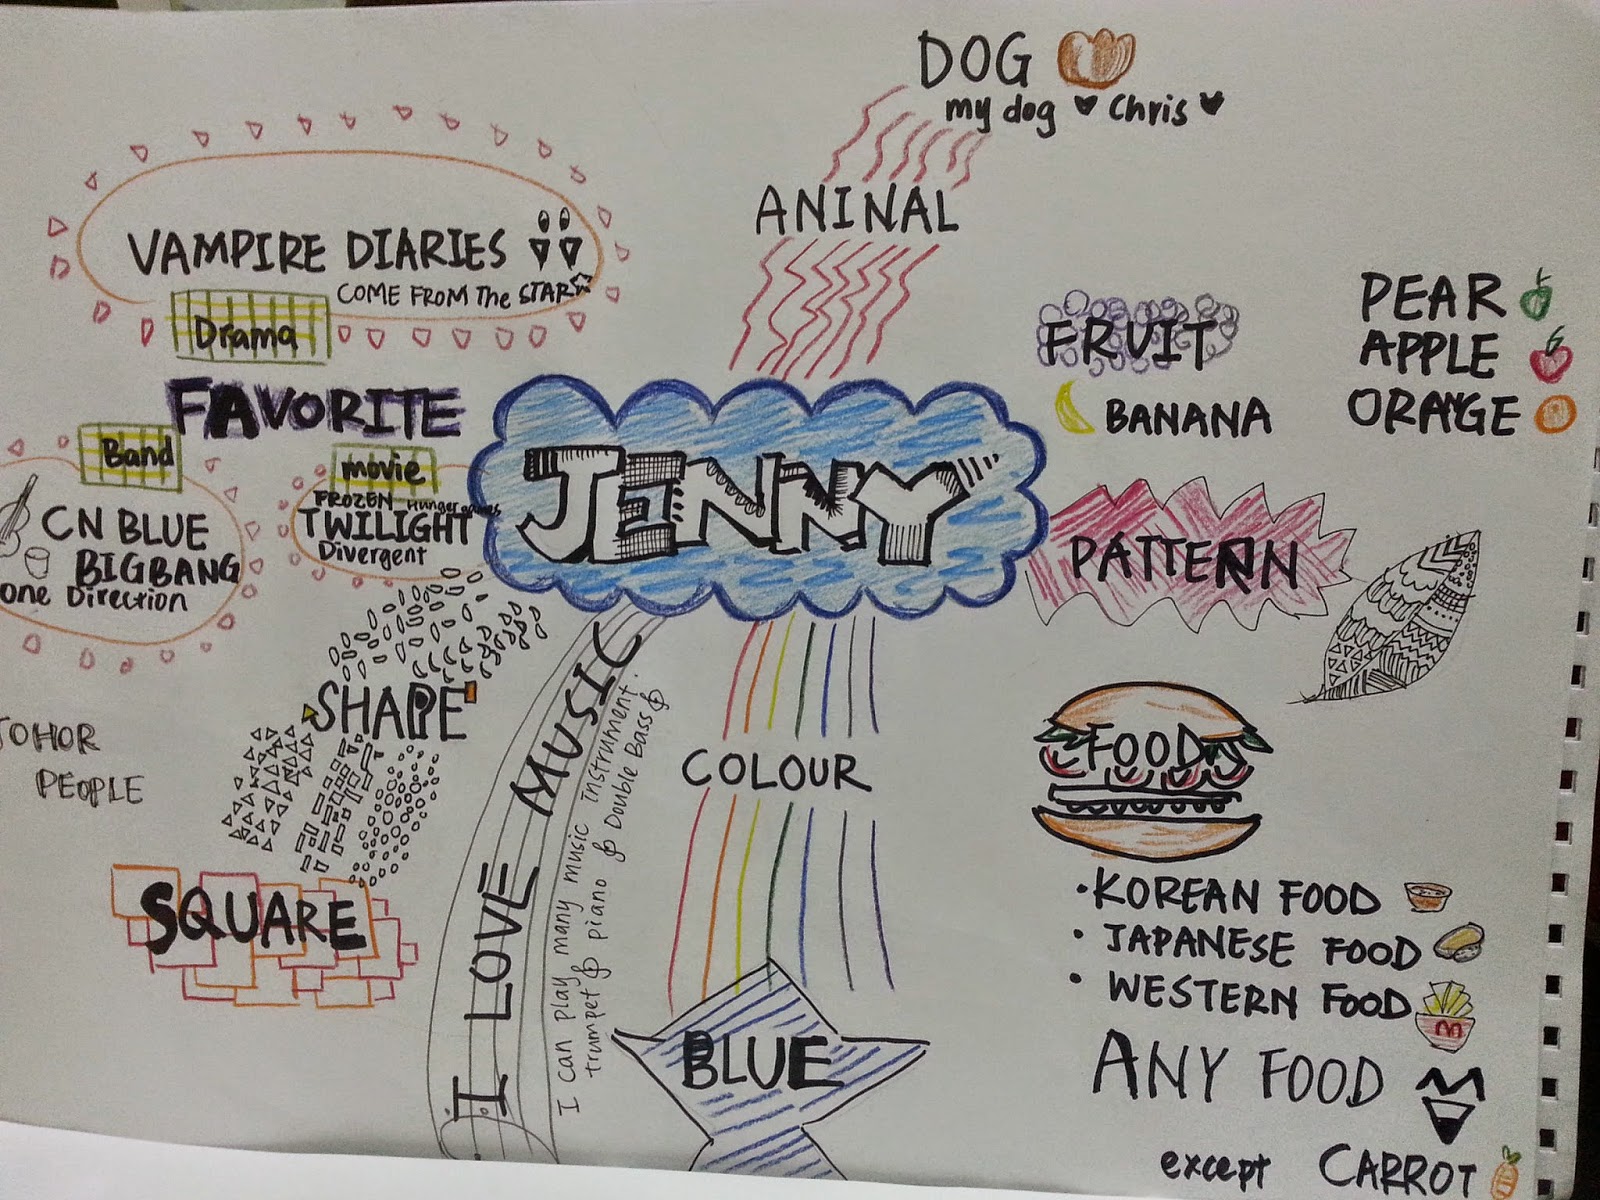 DOG
my dog Chris
ANINAL
VAMPIRE DIARIES
COME FROM The STAR
Drama
FAVORITE
Band
CN BLUE
BIGBANG
One Direction
movie
FROZEN Hunger games
TWILIGHT
Divergent
JENNY
FRUIT
BANANA
PEAR
APPLE
ORANGE
PATTERN
SHAPE
SQUARE
JOHOR
PEOPLE
I LOVE MUSIC
I can play many music instrument.
trumpet piano Double Bass
COLOUR
BLUE
FOOD
• KOREAN FOOD
• JAPANESE FOOD
• WESTERN FOOD
ANY FOOD
except CARROT